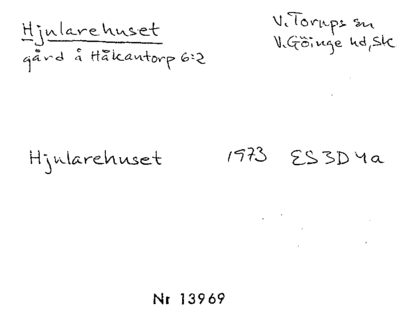 Hjularehuset
V. Torups sn
gård å Håkantorp 6:2
V. Göinge hd, Sk
Hjularehuset 1973 ES3D4a
Nr 13969